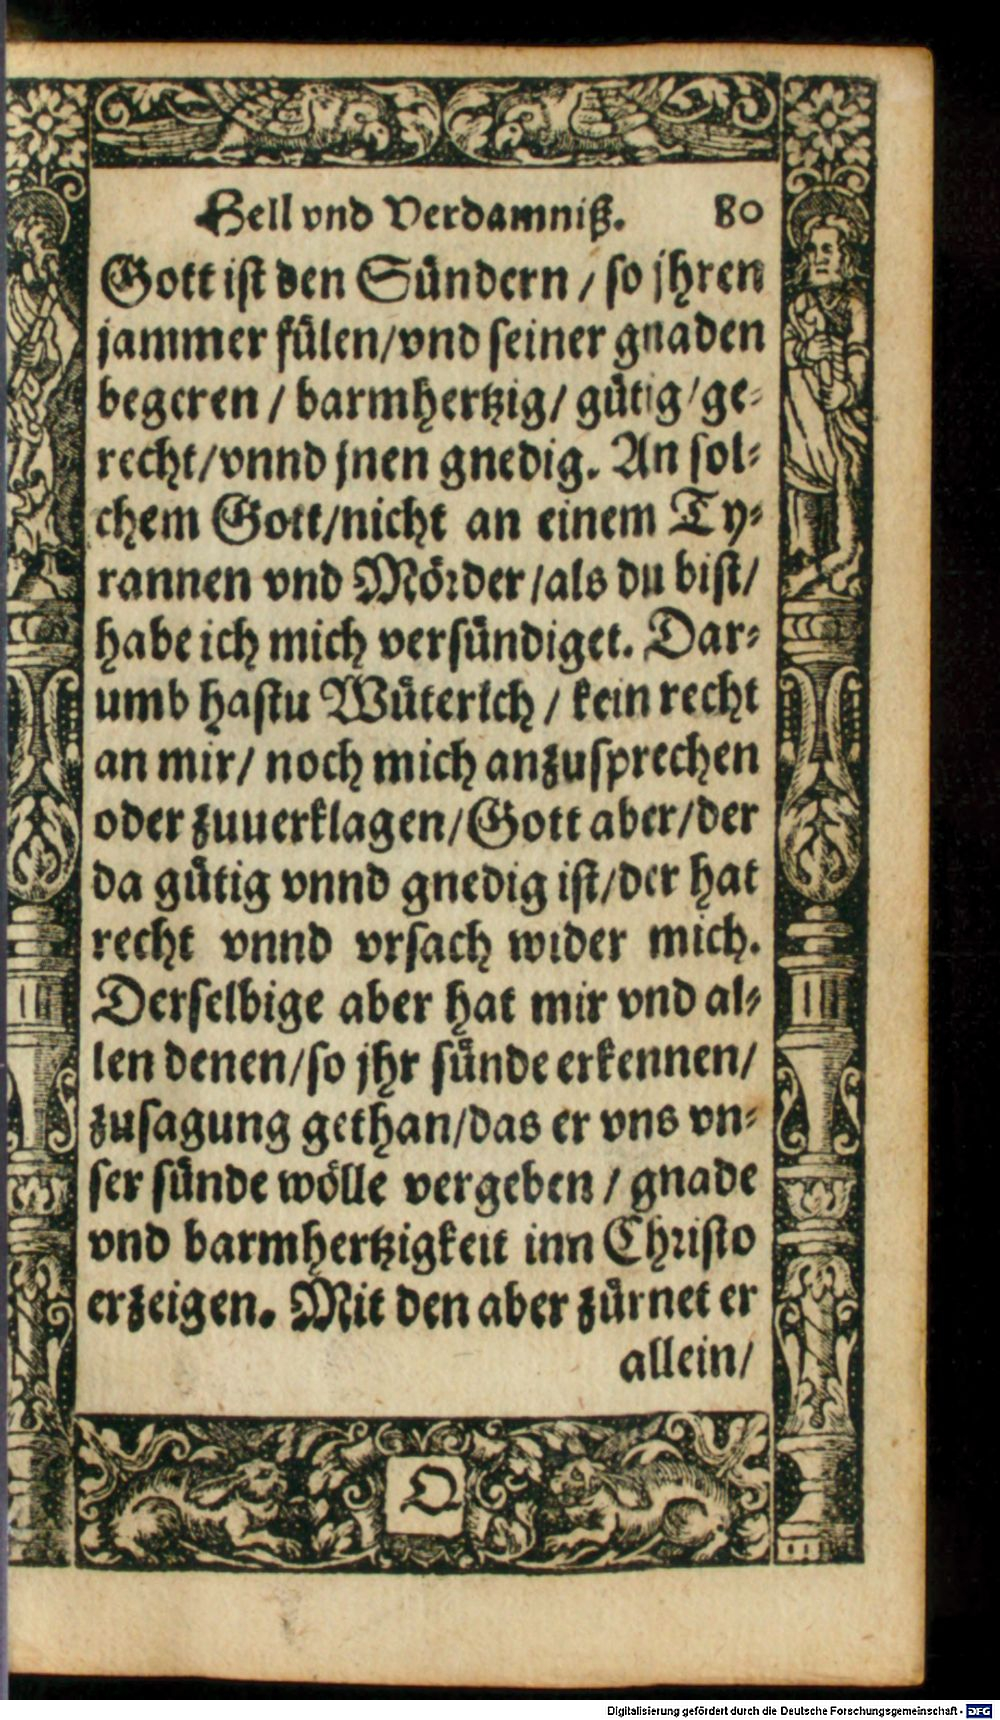 Hell vnd Verdamniß. 80
Gott ist den Sündern / so jhren
jammer fülen/vnd seiner gnaden
begeren / barmhertzig/ gütig/ge-
recht/vnnd jnen gnedig. An sol-
chem Gott/nicht an einem Ty-
rannen vnd Mörder/als du bist/
habe ich mich versündiget. Dar-
umb hastu Wüterich / kein recht
an mir/ noch mich anzusprechen
oder zuuerklagen/Gott aber/der
da gütig vnnd gnedig ist/der hat
recht vnnd vrsach wider mich.
Derselbige aber hat mir vnd al-
len denen/so jhr sünde erkennen/
zusagung gethan/das er vns vn-
ser sünde wölle vergeben / gnade
vnd barmhertzigkeit inn Christo
erzeigen. Mit den aber zürnet er
allein/
Q
Digitalisierung gefördert durch die Deutsche Forschungsgemeinschaft - DFG